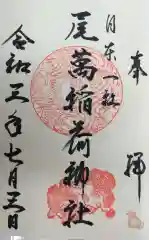 奉
拝
日本一社
尾萬稲荷神社
令和三年七月三日